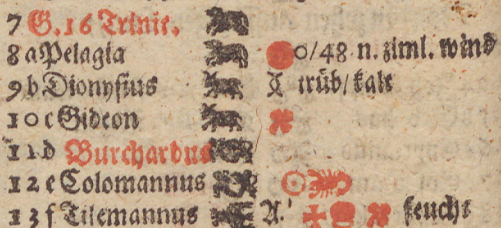 7 G. 16 Trinit.
8 a Pelagia 0/48 n. ziml. wind
9 b Dionysius trüb/ kalt
10 c Gideon
11 d Burchardus
12 e Colomannus
13 f Tilemannus A. feucht